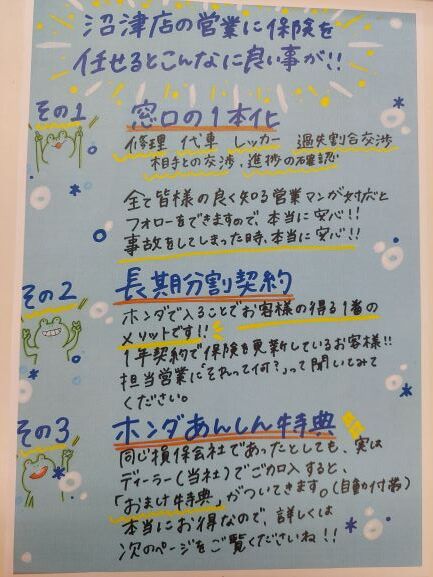 沼津店の営業に保険を
任せるとこんなに良い事が!!
その1 窓口の1本化
修理 代車 レッカー 過失割合交渉
相手との交渉、進捗の確認
全て皆様の良く知る営業マンが対応と
フォローをできますので、本当に安心!!
事故をしてしまった時、本当に安心!!
その2 長期分割契約
ホンダで入ることでお客様の得る1番の
メリットです!!
1年契約で保険を更新しているお客様!!
担当営業に「それって何?」って聞いてみて
ください。
その3 ホンダあんしん特典
同じ損保会社であったとしても、実は
ディーラー(当社)でご加入すると、
「おまけ特典」がついてきます。(自動付帯)
本当にお得なので、詳しくは
次のページをご覧くださいね!!